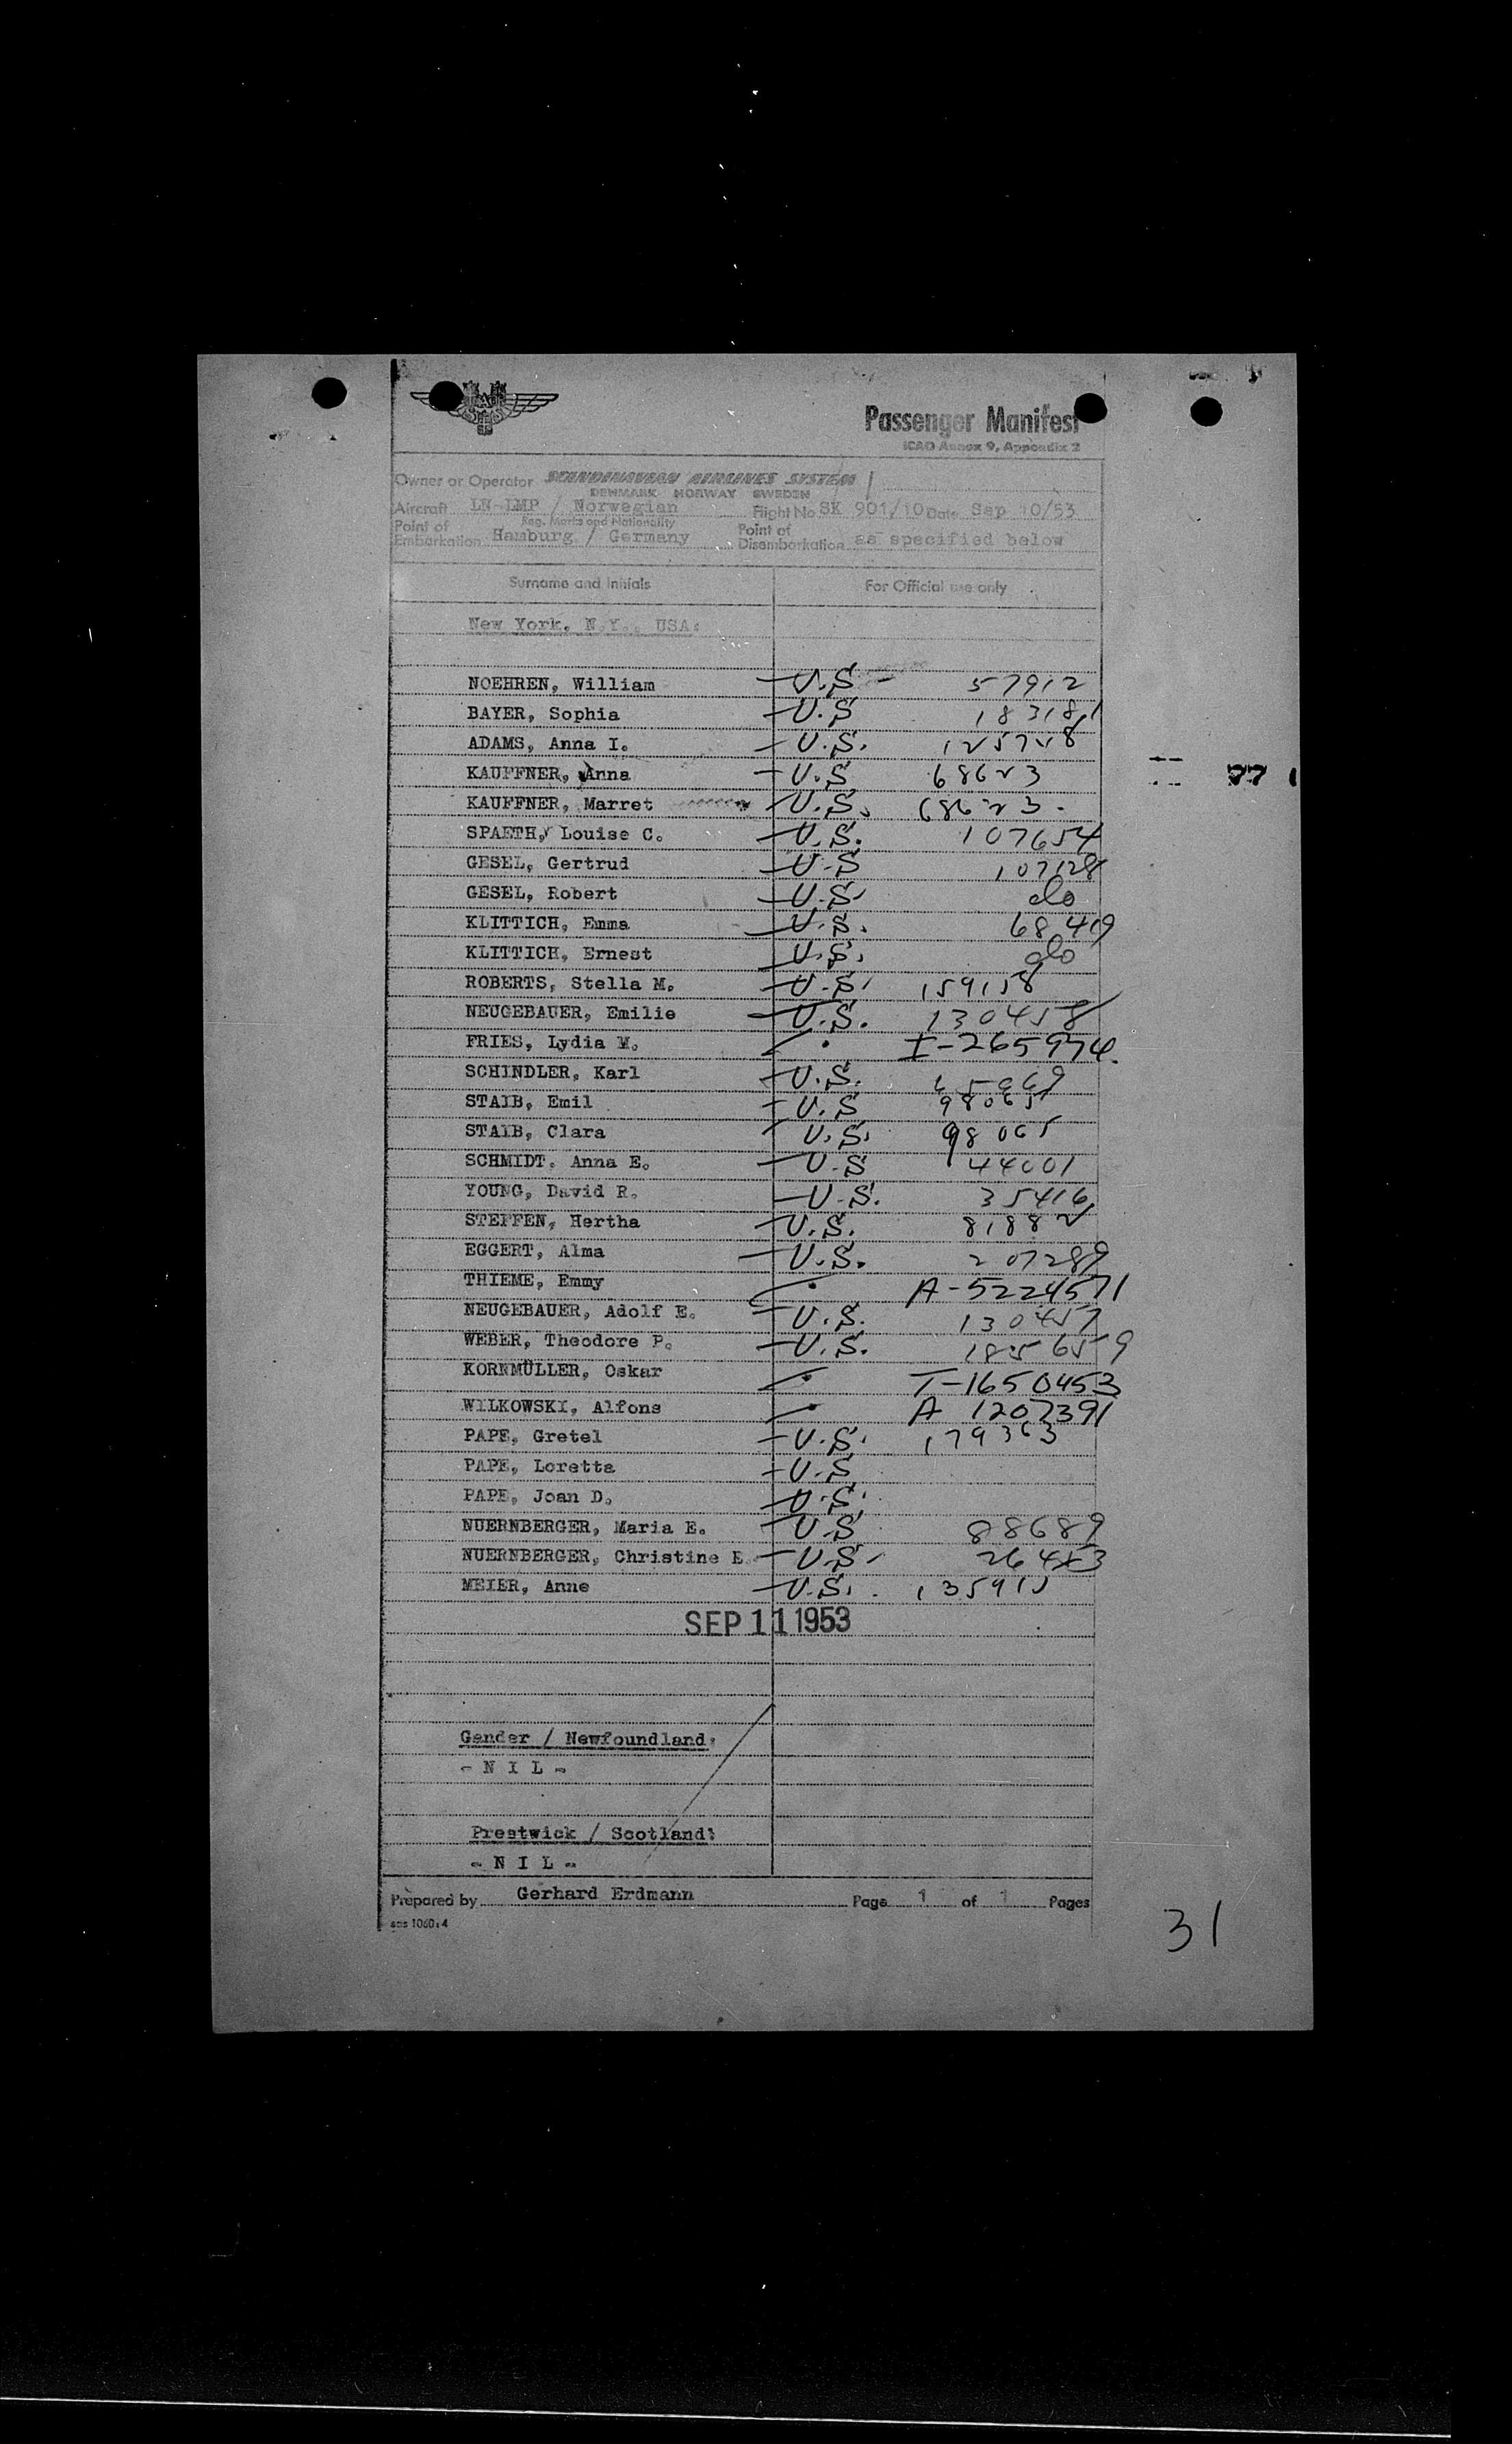 SAS
Passenger Manifest
ICAO Annex 9, Appendix 2
Owner or Operator SCANDINAVIAN AIRLINES SYSTEM
DENMARK NORWAY SWEDEN
Aircraft LN-LMP / Norwegian Flight No SK 901/10 Date Sep 10/53
Reg. Marks and Nationality
Point of Embarkation Hamburg / Germany Point of Disembarkation as specified below
Surname and Initials For Official use only
New York, N.Y., USA:
NOEHREN, William U.S - 57912
BAYER, Sophia U.S 183181
ADAMS, Anna I. U.S. 125728
KAUFFNER, Anna U.S 68623
KAUFFNER, Marret U.S. 68623.
SPAETH, Louise C. U.S. 107654
GESEL, Gertrud U.S 107128
GESEL, Robert U.S. do
KLITTICH, Emma U.S. 68419
KLITTICH, Ernest U.S. do
ROBERTS, Stella M. U.S. 159158
NEUGEBAUER, Emilie U.S. 130458
FRIES, Lydia M. I-265974.
SCHINDLER, Karl U.S.
STAIB, Emil U.S 98065
STAIB, Clara U.S. 98065
SCHMIDT, Anna E. U.S 44001
YOUNG, David R. U.S. 35416
STEFFEN, Hertha U.S. 81882
EGGERT, Alma U.S. 207289
THIEME, Emmy A-5224571
NEUGEBAUER, Adolf E. U.S. 130457
WEBER, Theodore P. U.S. 185659
KORNMÜLLER, Oskar T-1650453
WILKOWSKI, Alfons A 1207391
PAPE, Gretel U.S. 179363
PAPE, Loretta U.S
PAPE, Joan D. U.S.
NUERNBERGER, Maria E. U.S 88689
NUERNBERGER, Christine E. U.S.
MEIER, Anne U.S. 135915
SEP 11 1953
Gander / Newfoundland:
- N I L -
Prestwick / Scotland:
- N I L -
Prepared by Gerhard Erdmann Page 1 of 1 Pages
sas 1060:4
31